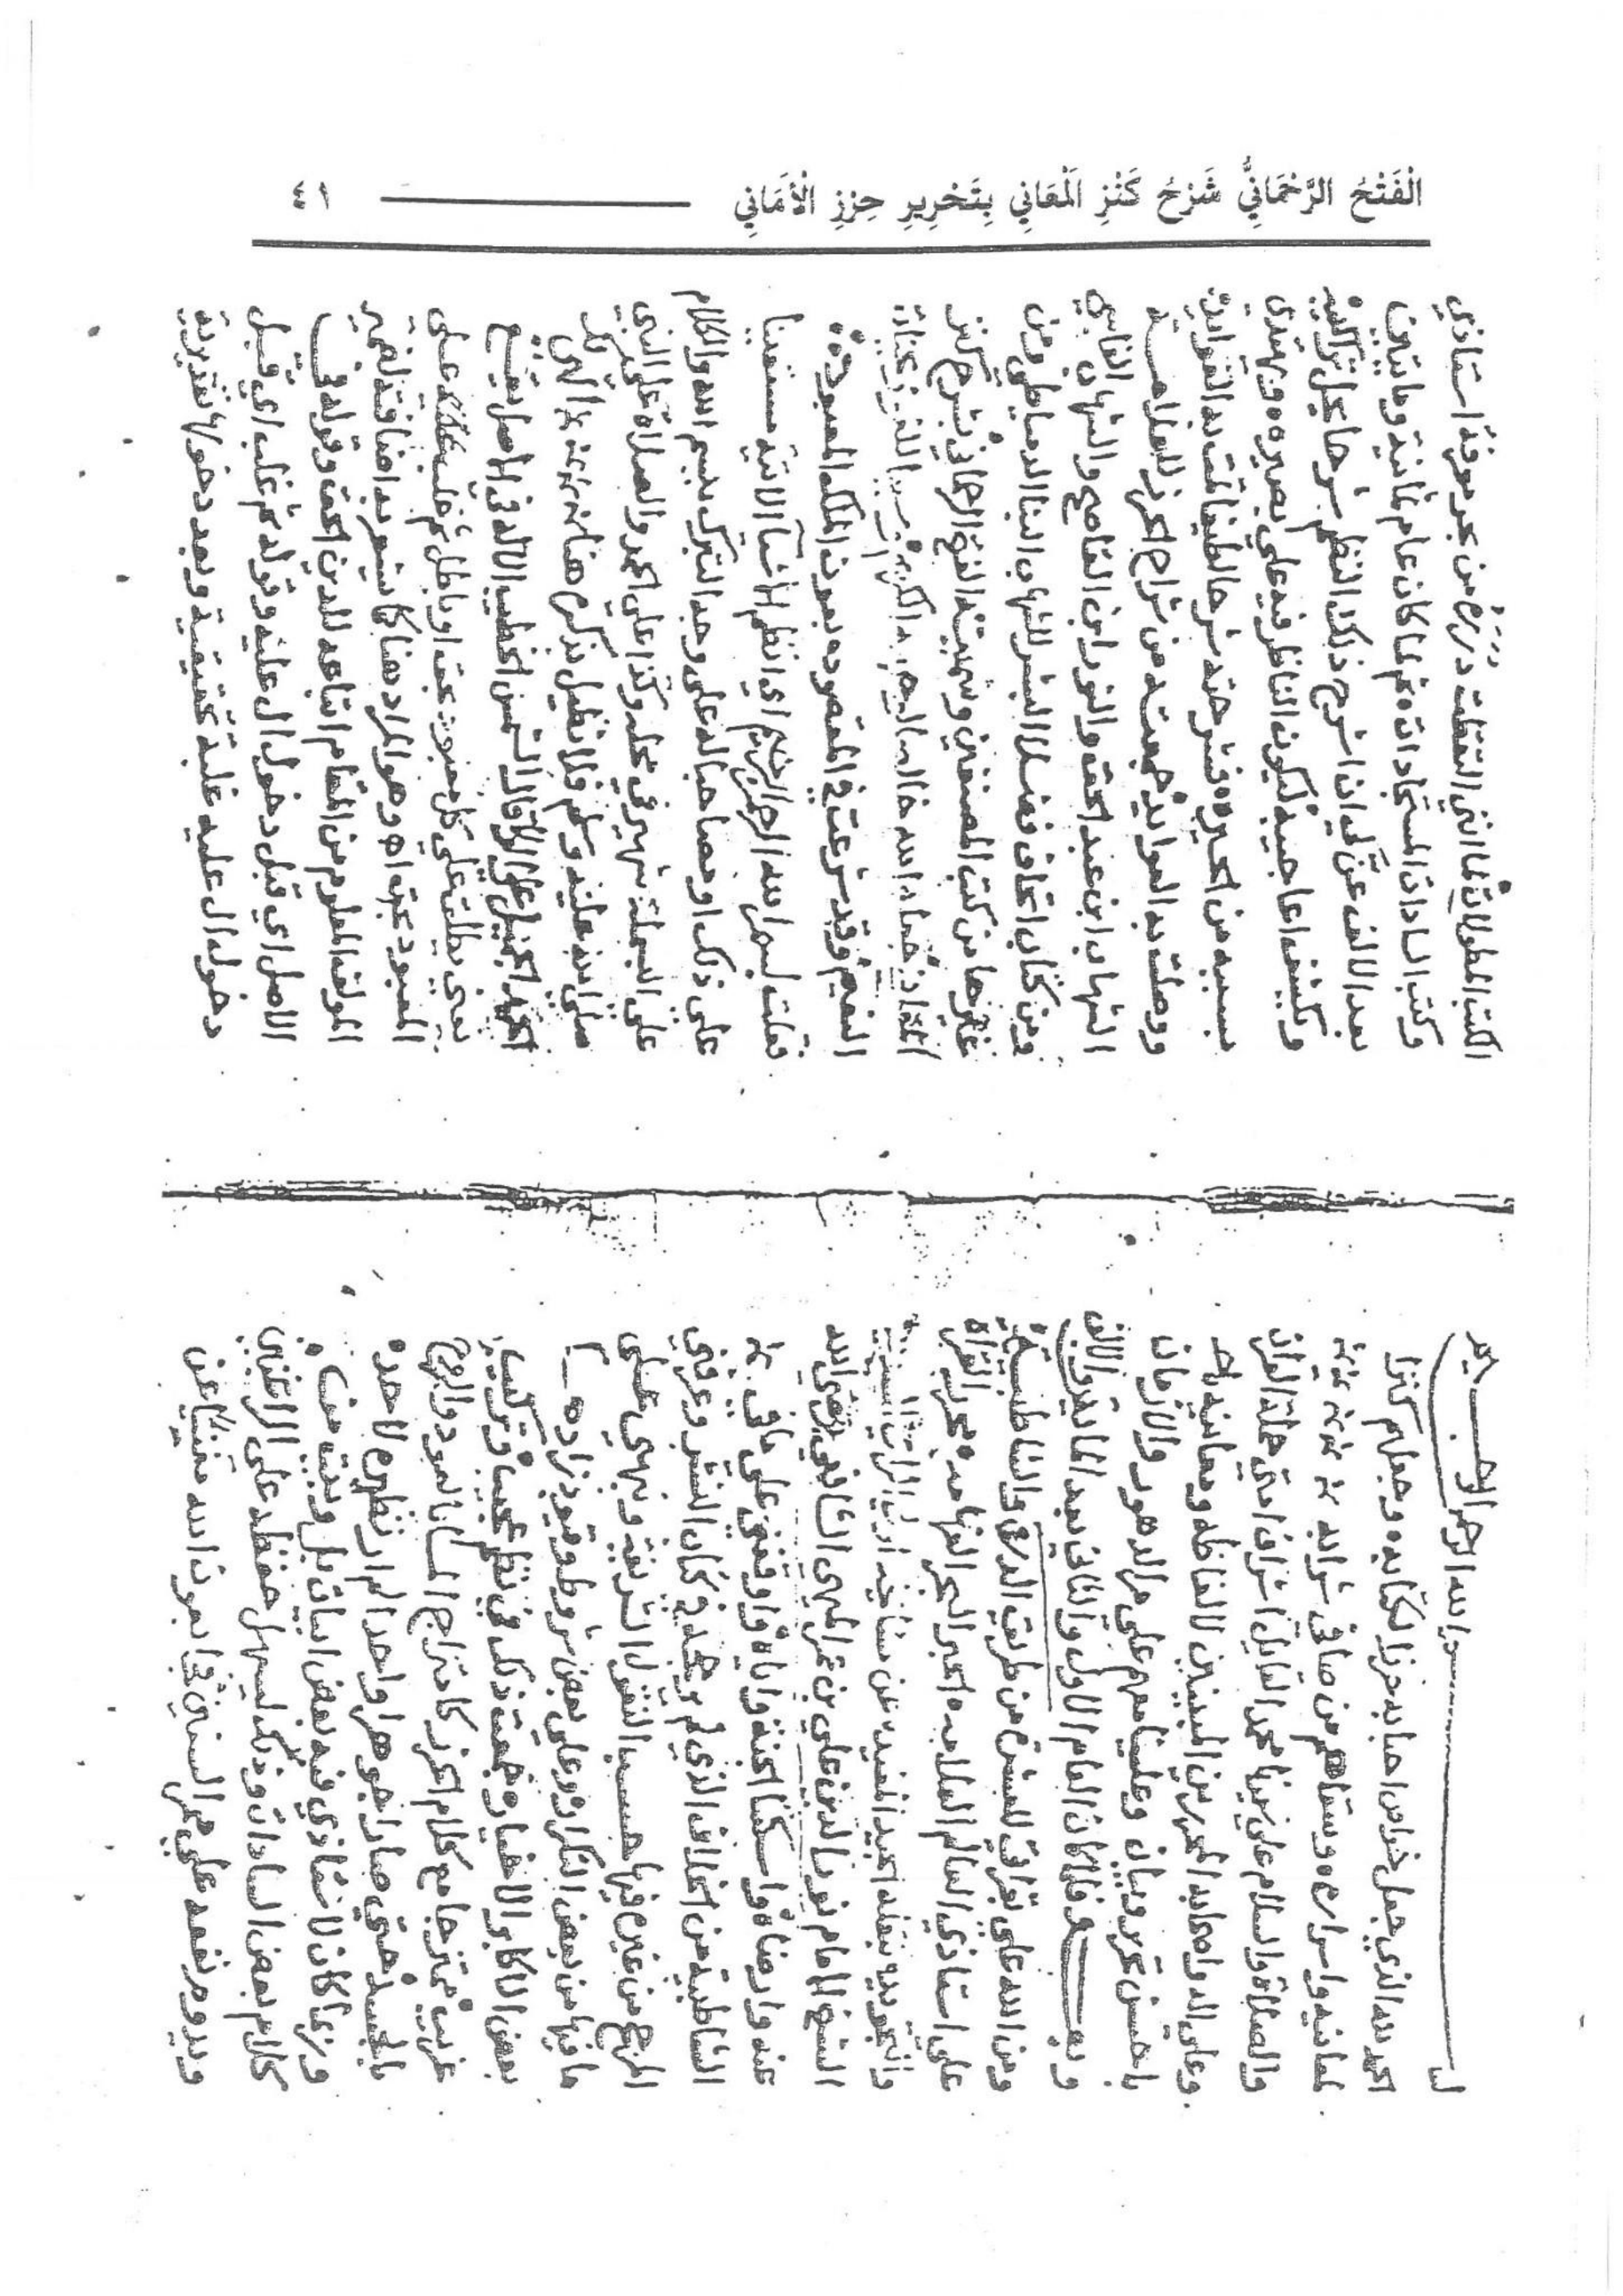 الْفَتْحُ الرَّحْمَانِيُّ شَرْحُ كَنْزِ الْمَعَانِي بِتَحْرِيرِ حِرْزِ الْأَمَانِي ٤١
بسم الله الرحمن الرحيم
الحمد لله الذي جعل خواص احبابه حرزا لكتابه وجعلهم كنزا
لمعانيه واسراره وسقاهم من صافى شرابه
والصلاة والسلام على سيدنا محمد القايل اشراف امتي حملة القران
وعلى اله واصحابه المحررين المبينين لالفاظه ومعانيه
باحسن تحرير وبيان وعلينا معهم على ممر الدهور والازمان
وبعد فلما كان العام الاول والثاني بعد المايتين والالف
ومن الله على بقراتي للعشرة من طريق الدرة والشاطبية
على استاذي العالم العلامه الحبر البحر الفهامه محرر القراة
والتجويد
الشيخ الامام نور الدين علي بن عمر الميهى الشافعي رضى الله
عنه وارضاه واسكننا الجنة واياه واوقفنى على ما فى
الشاطبية من الخلاف الذي لم يوجد فى كتاب النشر وعرفنى
المرجح من غيره فيها حسب النقول الشريفة ونبهني على
ما فيها من بعض التكرار وعلى بعض شروط وقيود زاده
بعض الاكابر الاخيار وجمعت ذلك في نظم عجيب وتركيب
غريب ممتزجا مع كلام الحرز كامتزاج الماء بالعود والروح
بالجسد حتي صارا جوهرا واحدا لم ار نظيره لاحد
وربما كان لاستاذي فيه بعض ابيات بل وبيت من
كلام بعض السادات وذلك ليسهل حفظه على الراغبين
ويدوم نفعه على ممر السنين فجا بعون الله مغنيا عن
الكتب المطولات لما انني التقطت درره من بحر وفد استاذي
وكتب السادات المستجادات ثم لما كان عام ثمانية ومايتين
بعد الالف عن لي ان اشرح ذلك النظم شرحا يحل تراكيبه
ويكشف اعاجيبه ليكون الناظر فيه على بصيره ويهتدي
بسببه من الحيره فشرحته شرحا لطيفا قيدت به الفوايد
ووصلت به العوايد جمعته من شراح الحرز للعلامه
الشهاب ابن عبد الحق والنور ابن القاصح والشهاب الفاسي
ومن كتاب اتحاف فضلاء البشر للشهاب البنا الدمياطي ومن
غيرها من كتب المصنفين وسميته الفتح الرحماني بشرح كنز
المعاني جعله الله خالصا لوجهه الكريم
النعيم وقد شرعت في المقصود بعون الملك المعبود
فقلت بسم الله الرحمن الرحيم اي انظم الاشيا الاتية مستعينا
على ذلك او مصاحبا له على وجه التبرك بسم الله والكلام
على البسملة شهير في محله وكذا على الحمد والصلاة على النبى
صلى الله عليه وسلم فلا نطيل بذكره هنا
الحمد الجميل على الاله قال الشمس الخطيب الاله فى الاصل يقع
يعني يطلق على كل معبود بحق او باطل ثم غلب على
المعبود بحق اه وهو المراد هنا كما يشعر به اضافته لضمير
المولف المعلوم من المقام اتباعه للدين الحق وقوله في
الاصل اي قبل دخول ال عليه وقوله ثم غلب اي قبل
دخول ال عليه غلبة تحقيقية وبعد دخولها تقديرية